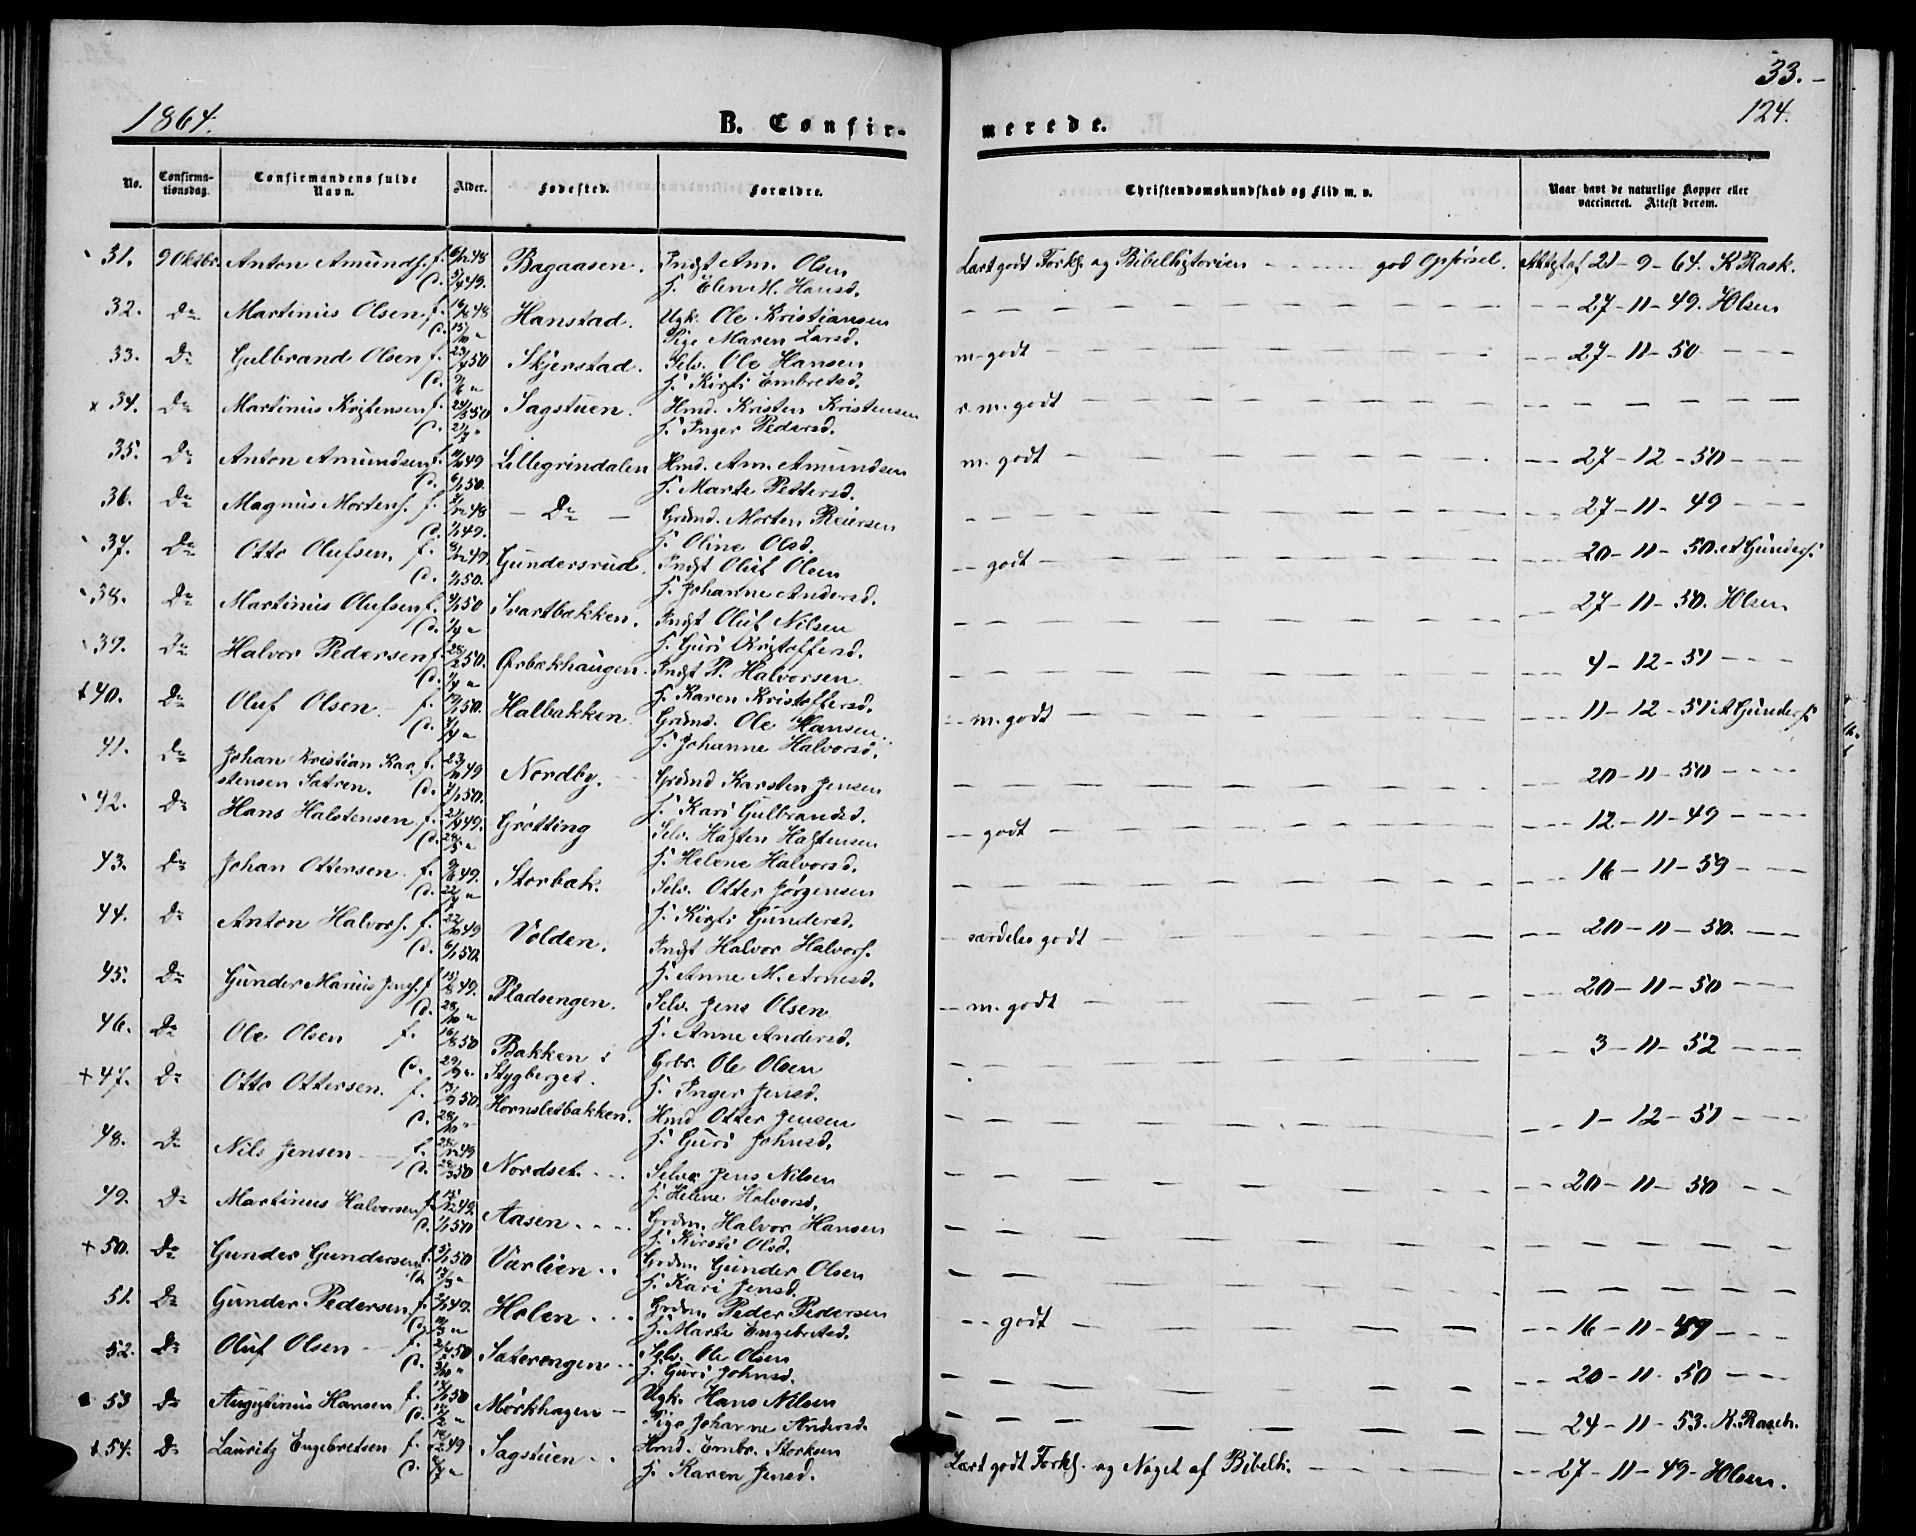 33.
124.
1864.
B. Confirmerede.
No. Confirmationsdag. Confirmandens fulde Navn. Alder. Fødested. Forældre. Christendomskundskab og Flid m. v. Naar havt de naturlige Kopper eller vaccineret. Attest derom.
31. 9 Oktbr. Anton Amunds. f. Bagaasen. Indst Am. Olsen Lært godt Forkl. og Bibelhistorien god Opførsel. Attest af 21-9-64. K Rask.
d. 49. h. Elen M. Hansd.
32. Do Martinus Olsen f. 48 Hanstad. Ugk. Ole Kristiansen 27-11-49. HOlsen
d. Pige Maren Larsd.
33. Do Gulbrand Olsen f. 50 Skjerstad. Selv. Ole Hansen m. godt 27-11-50
d. h. Kirsti Embretsd.
x 34. Do Martinus Kristensen f. 50 Sagstuen. Hmd. Kristen Kristensen s. m. godt
d. h. Inger Pedersd.
35. Do Anton Amundsen f. 49 Lillegrindalen Hmd. Am. Amundsen m. godt 27-12-50
d. 50. h. Marte Pettersd.
36. Do Magnus Mortens. f. 48 Do Grdmd. Morten Reiersen 27-11-49
d. 49. h. Oline Olsd.
37. Do Otto Olufsen. f. 49. Gundersrud. Indst Oluf Olsen godt 20-11-50. A Gunders.
d. 50. h. Johanne Andersd.
38. Do Martinus Olufsen f. 50 Svartbakken. Indst Oluf Nilsen 27-11-50. HOlsen
d. h. Guri Kristoffersd.
39. Do Halvor Pedersen f. 50. Ørbækhaugen. Indst P. Halvorsen 4-12-51
d. h. Karen Kristoffersd.
+ 40. Do Oluf Olsen f. 50. Halbakken. Grdmd. Ole Hansen. m. godt 11-12-51 A Gunders.
d. h. Johanne Halvorsd.
41. Do Johan Kristian Kar- f. 49 Nordby. Grdmd Karsten Jensen 20-11-50
stensen Satren. d. 50. h. Kari Gulbrandsd.
42. Do Hans Halstensen f. 49. Grøtting Selv. Halsten Halstensen godt 12-11-49
d. h. Helene Halvorsd.
43. Do Johan Ottersen f. 49. Storbak. Selv. Otter Jørgensen 16-11-59
d. h. Kirsti Gundersd.
44. Do Anton Halvors. f. 49 Volden. Indst Halvor Halvors. særdeles godt 20-11-50.
d. 50. h. Anne M. Arnesd.
45. Do Gunder Marius Jens. f. 49. Pladsengen. Selv. Jens Olsen m. godt 20-11-50
d. h. Anne Andersd.
46. Do Ole Olsen f. 50 Bakken i Grbr. Ole Olsen 3-11-52
d. Stygberget. h. Inger Jensd.
+ 47. Do Otto Ottersen. f. 50. Hornsletbakken. Hmd Otter Jensen 1-12-51
d. h. Guri Johnsd.
48. Do Nils Jensen f. 49 Nordset. Selv. Jens Nilsen 20-11-50
d. 50 h. Helene Halvorsd.
49. Do Martinus Halvorsen f. 49. Aasen. Grdm. Halvor Hansen
d. 50 h. Kirsti Olsd.
+ 50. Do Gunder Gundersen f. 50 Varlien. Grdm. Gunder Olsen
d. h. Kari Jensd.
51. Do Gunder Pedersen f. 49. Holen. Grdm. Peder Pedersen godt 16-11-49
d. h. Marte Engebretsd.
52. Do Oluf Olsen f. 50 Saterengen. Selv. Ole Olsen 20-11-50
d. h. Guri Johnsd.
53 Do Augustinus Hansen f. 50 Mørkhagen Ugk. Hans Nilsen 24-11-53. K. Rasch.
d. Pige Johanne Andersd.
+ 54. Do Lauritz Engebretsen f. 49 Sagstuen Hmd. Embr. Størksen Lært godt Forkl. og Noget af Bibelh. 27-11-49-HOlsen.
d. h. Karen Jensd.